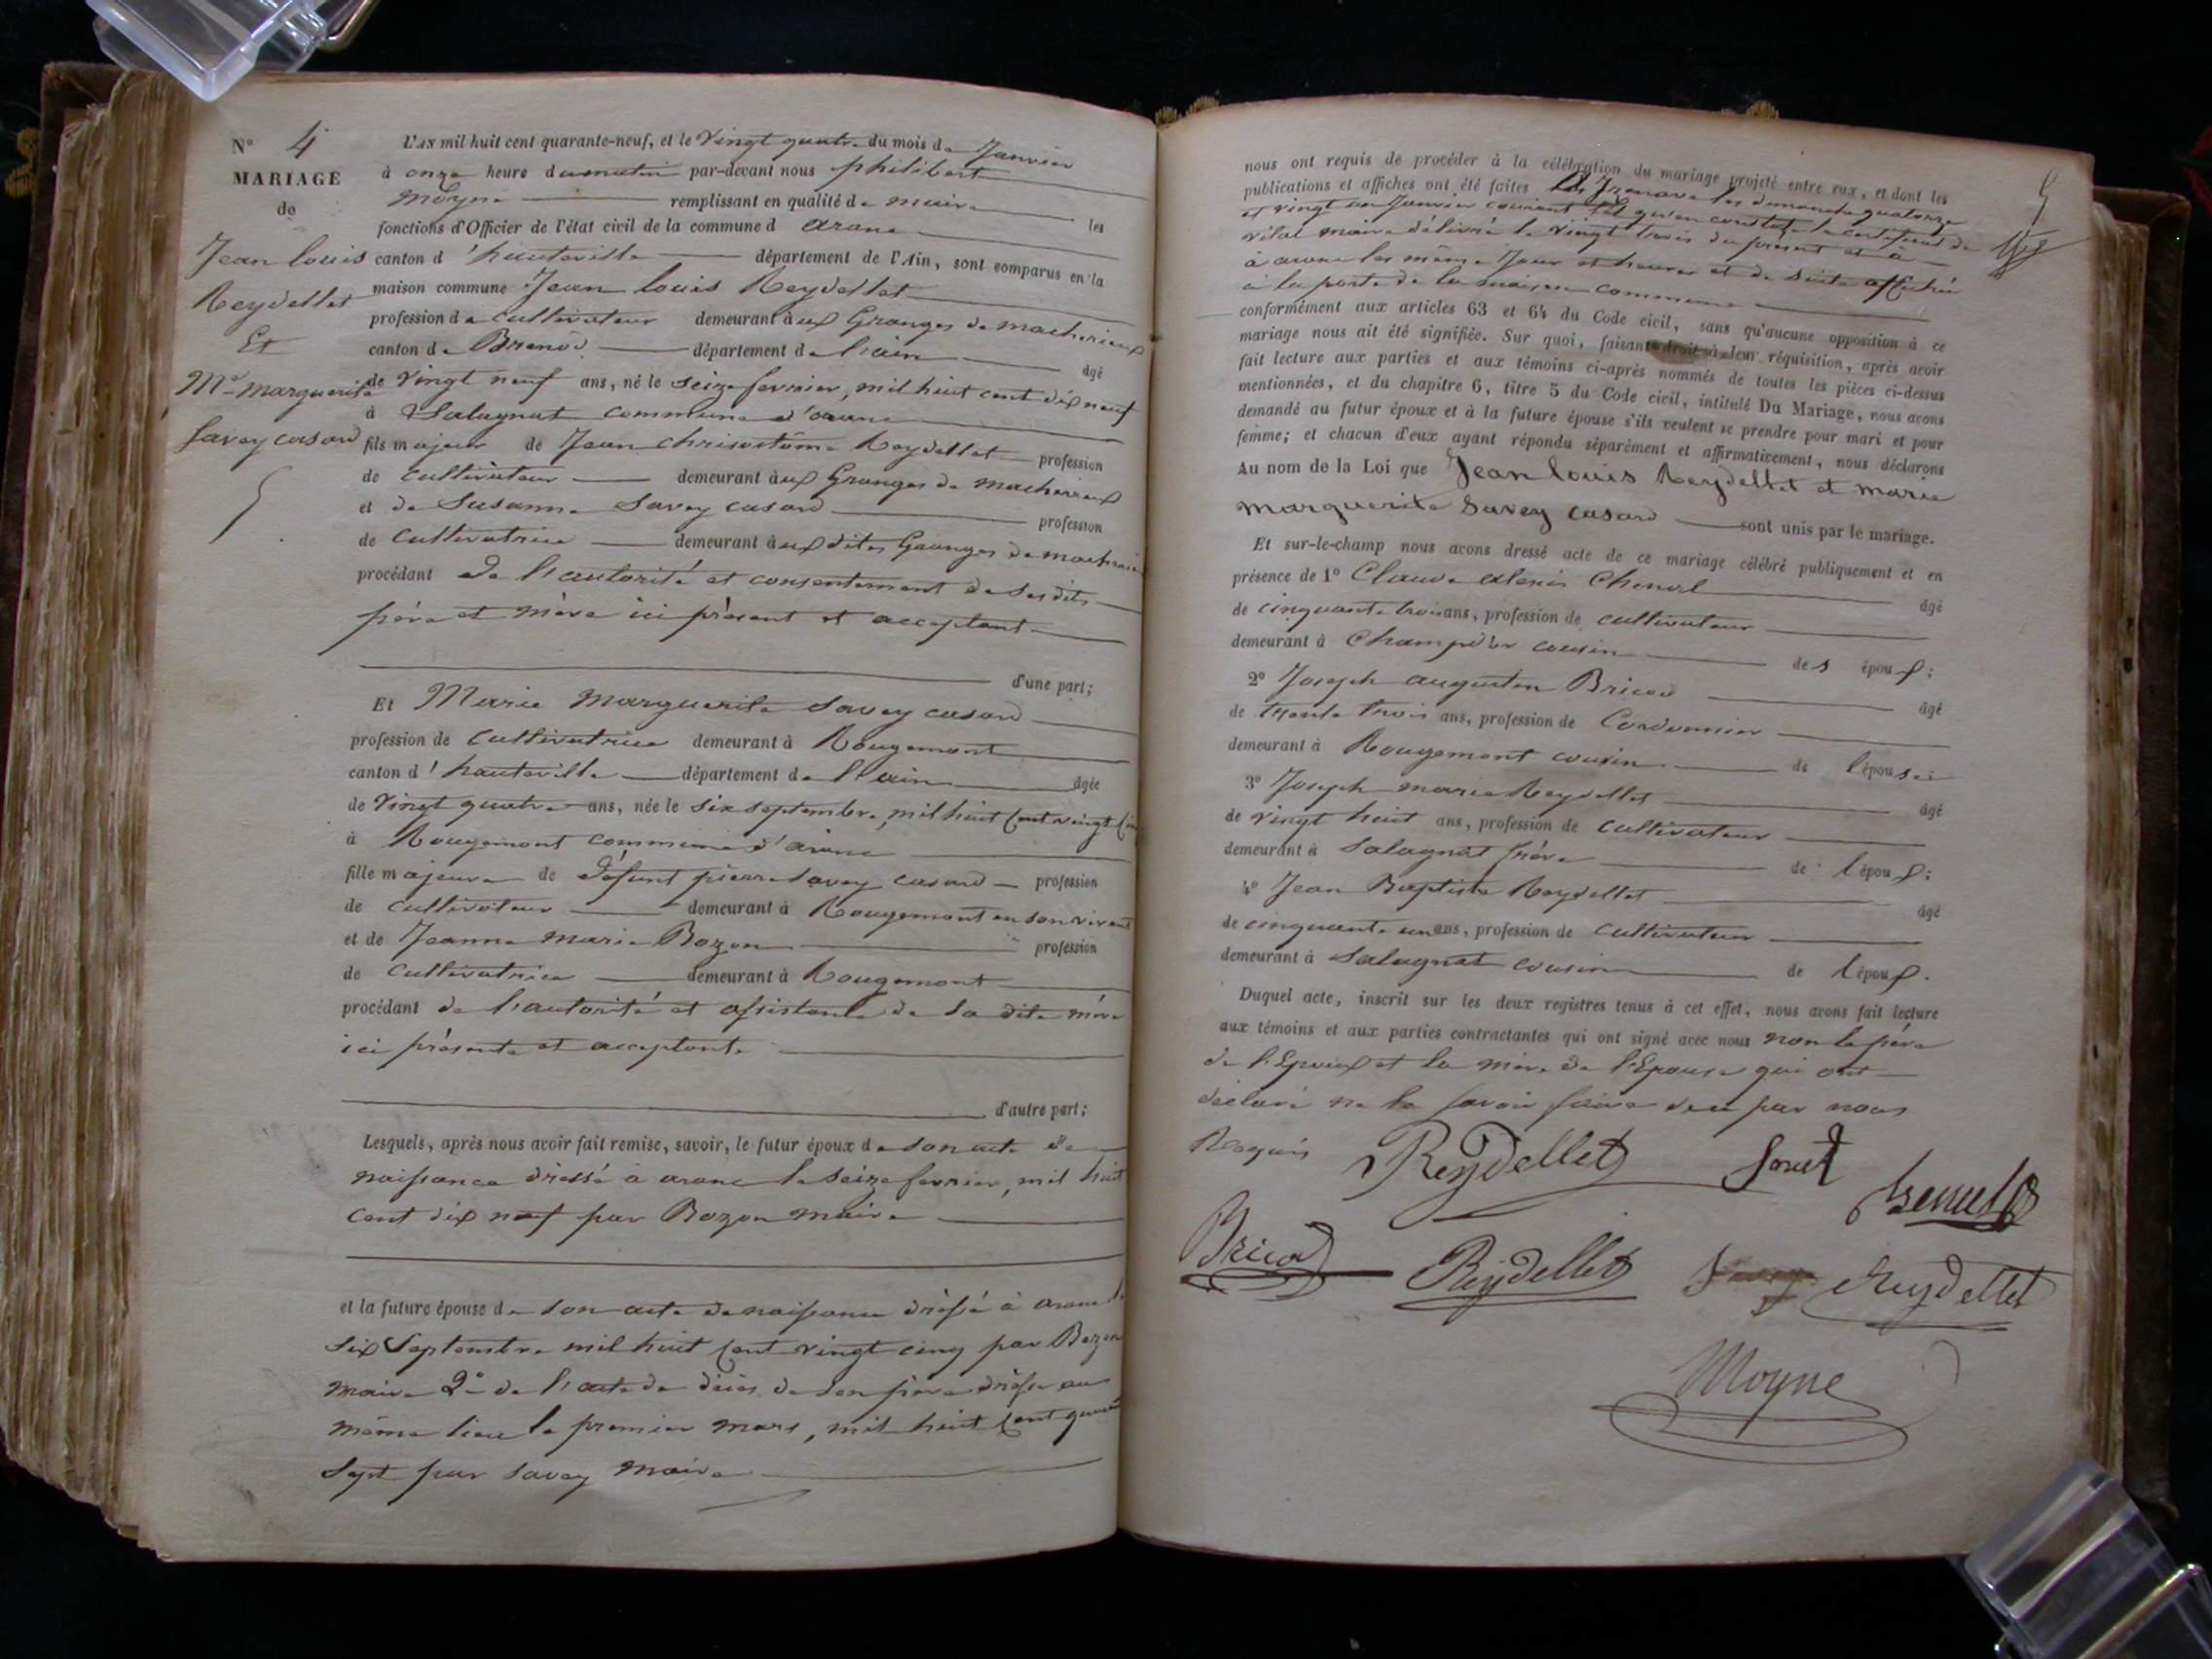 N° 4
MARIAGE
de
Jean louis
Reydellet
Et
Mie marguerite
Savey casard
L'AN mil huit cent quarante-neuf, et le Vingt quatre du mois de Janvier
à onze heure du matin par-devant nous philibert
Moyne remplissant en qualité de maire les
fonctions d'Officier de l'état civil de la commune d arane
canton d 'hauteville département de l'Ain, sont comparus en la
maison commune Jean louis Reydellet
profession de cultivateur demeurant aux Granges de
canton de Brenod département de l'ain âgé
de vingt neuf ans, né le seize fevrier, mil huit cent dix neuf
à Salagnat commune d'arane
fils majeur de Jean chrisostôme Reydellet profession
de cultivateur demeurant aux Granges de
et de Susanne Savey casard profession
de cultivatrice demeurant aux dites Granges de
procédant de l'autorité et consentement de ses dits
père et mère ici présent et acceptant
d'une part;
Et Marie Marguerite Savey casard
profession de cultivatrice demeurant à Rougemont
canton d 'hauteville département de l'ain âgée
de vingt quatre ans, née le six septembre, mil huit cent vingt
à Rougemont commune d'arane
fille majeure de défunt pierre Savey casard profession
de cultivateur demeurant à Rougemont en son vivant
et de Jeanne Marie Bozon profession
de cultivatrice demeurant à Rougemont
procédant de l'autorité et assistance de sa dite mère
ici présente et acceptante
d'autre part;
Lesquels, après nous avoir fait remise, savoir, le futur époux de son acte de
naissance dressé à arane le seize fevrier, mil huit
cent dix neuf par Bozon maire
et la future épouse de son acte de naissance dressé à arane le
six Septembre mil huit cent vingt cinq par Bozon
maire 2° de l'acte de décès de son père dressé au
même lieu le premier mars, mil huit cent
sept par Savey Maire
5
nous ont requis de procéder à la célébration du mariage projeté entre eux, et dont les
publications et affiches ont été faites les dimanche quatorze
et vingt un Janvier courant tel qu'en constate le certificat de
vilal maire délivré le vingt trois du présent et à
à arane les même jour et heures et de suite affichée
à la porte de la maison commune
conformément aux articles 63 et 64 du Code civil, sans qu'aucune opposition à ce
mariage nous ait été signifiée. Sur quoi, faisant droit à leur réquisition, après avoir
fait lecture aux parties et aux témoins ci-après nommés de toutes les pièces ci-dessus
mentionnées, et du chapitre 6, titre 5 du Code civil, intitulé Du Mariage, nous avons
demandé au futur époux et à la future épouse s'ils veulent se prendre pour mari et pour
femme; et chacun d'eux ayant répondu séparément et affirmativement, nous déclarons
Au nom de la Loi que Jean louis Reydellet et marie
marguerite Savey casard sont unis par le mariage.
Et sur-le-champ nous avons dressé acte de ce mariage célébré publiquement et en
présence de 1° Claude alexis Chenel âgé
de cinquante trois ans, profession de cultivateur
demeurant à Champd'or cousin des époux;
2° Joseph augustin Bricod âgé
de trente trois ans, profession de Cordonnier
demeurant à Rougemont cousin de l'épouse
3° Joseph marie Reydellet âgé
de vingt huit ans, profession de cultivateur
demeurant à Salagnat frère de l'époux;
4° Jean Baptiste Reydellet âgé
de cinquante un ans, profession de cultivateur
demeurant à Salagnat cousin de l'époux.
Duquel acte, inscrit sur les deux registres tenus à cet effet, nous avons fait lecture
aux témoins et aux parties contractantes qui ont signé avec nous non le père
de l'Epoux et la mère de l'Epouse qui ont
déclaré ne le savoir faire de ce par nous
Requis
Reydellet
Bricod Reydellet Savey Reydellet
Moyne